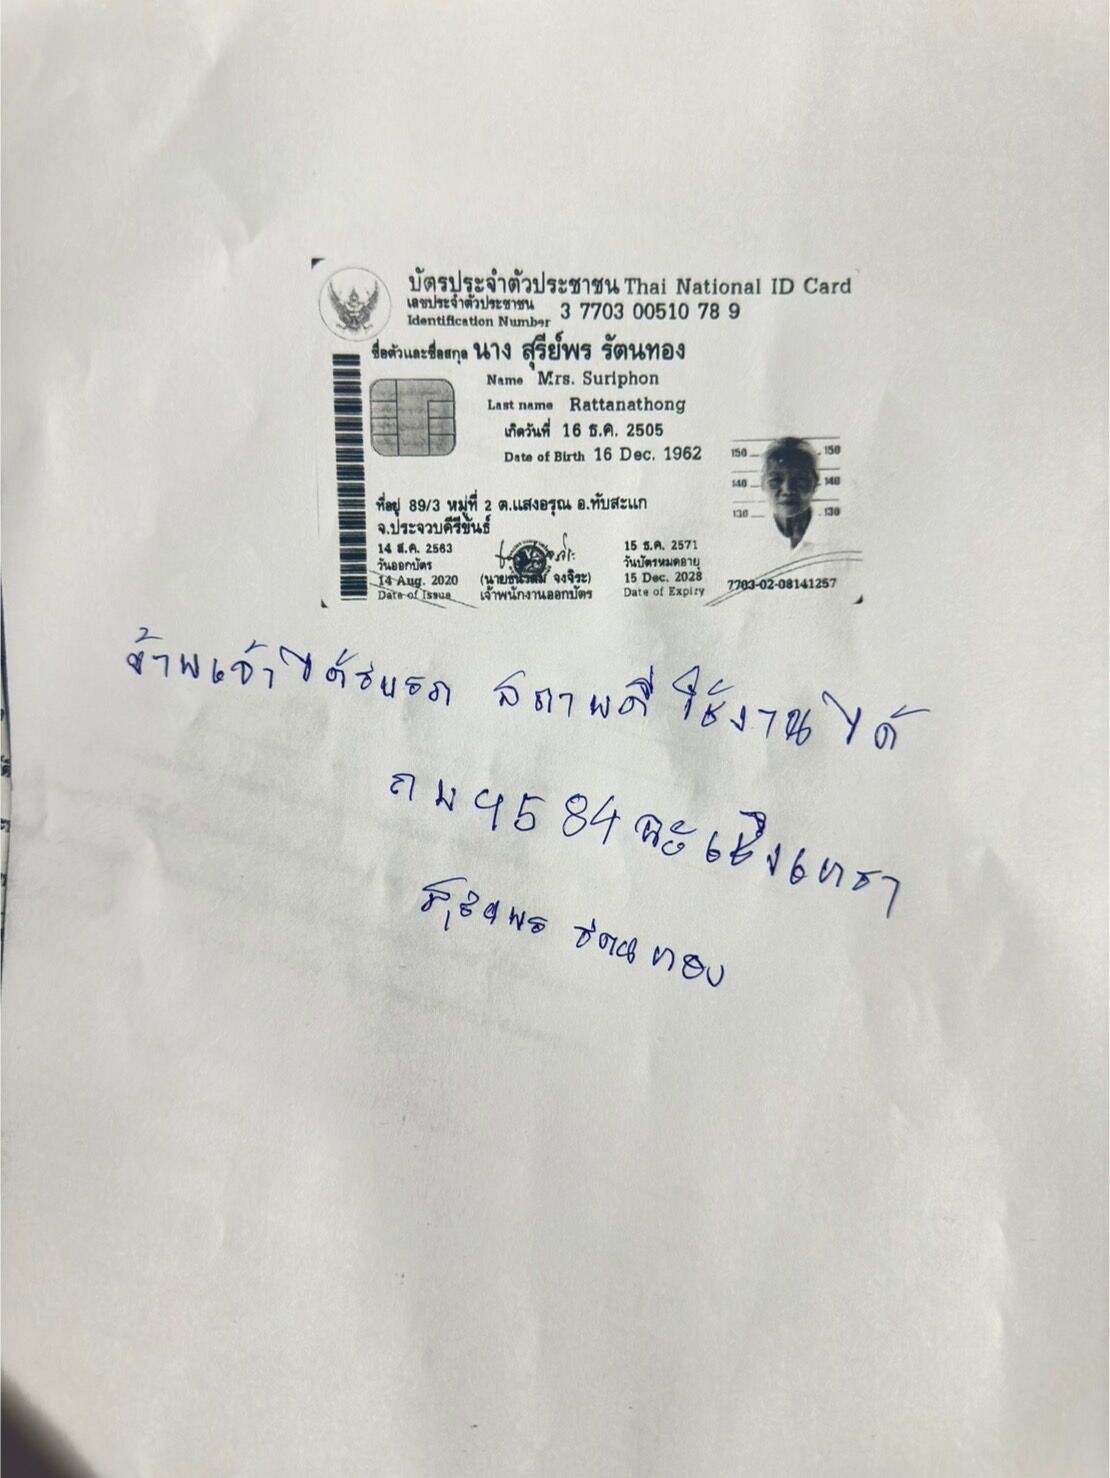 บัตรประจำตัวประชาชน Thai National ID Card
เลขประจำตัวประชาชน
Identification Number 3 7703 00510 78 9
ชื่อตัวและชื่อสกุล นาง สุรีย์พร รัตนทอง
Name Mrs. Suriphon
Last name Rattanathong
เกิดวันที่ 16 ธ.ค. 2505
Date of Birth 16 Dec. 1962
150 150
140 140
130 130
ที่อยู่ 89/3 หมู่ที่ 2 ต.แสงอรุณ อ.ทับสะแก
จ.ประจวบคีรีขันธ์
14 ส.ค. 2563
วันออกบัตร
14 Aug. 2020
Date of Issue
จงจิระ)
เจ้าพนักงานออกบัตร
15 ธ.ค. 2571
วันบัตรหมดอายุ
15 Dec. 2028
Date of Expiry
7703-02-08141257
ข้าพเจ้าได้รับรถ สภาพดี ใช้งานได้
ถม 9584 ฉะเชิงเทรา
สุรีย์พร รัตนทอง